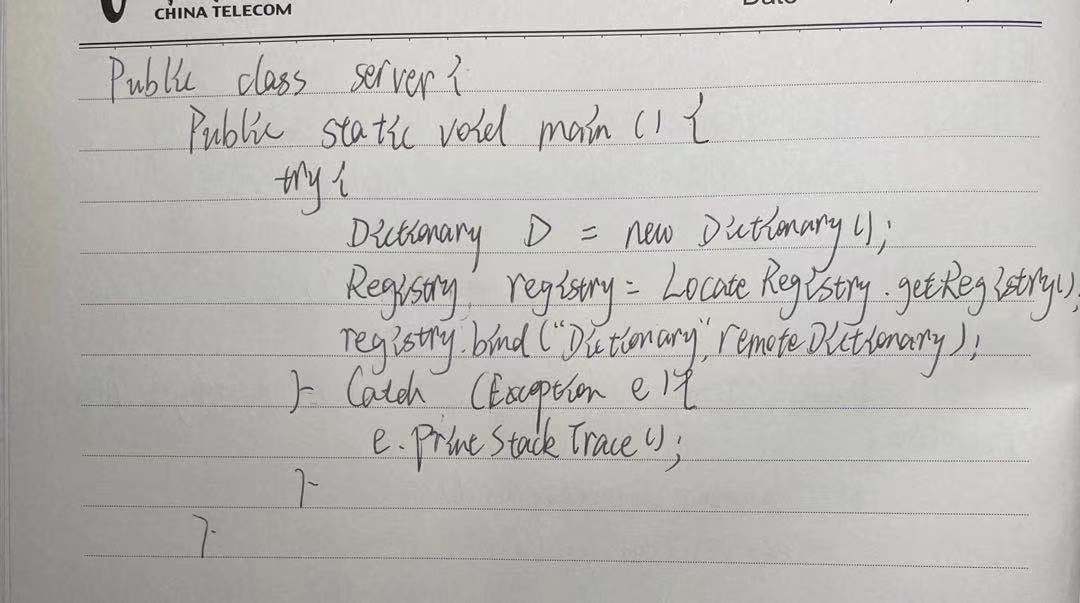 CHINA TELECOM
Public class server {
Public static void main () {
try {
Dictionary D = new Dictionary ();
Registry registry = Locate Registry . getRegistry();
registry.bind ("Dictionary", remoteDictionary);
} Catch (Exception e) {
e. printStackTrace ();
}
}